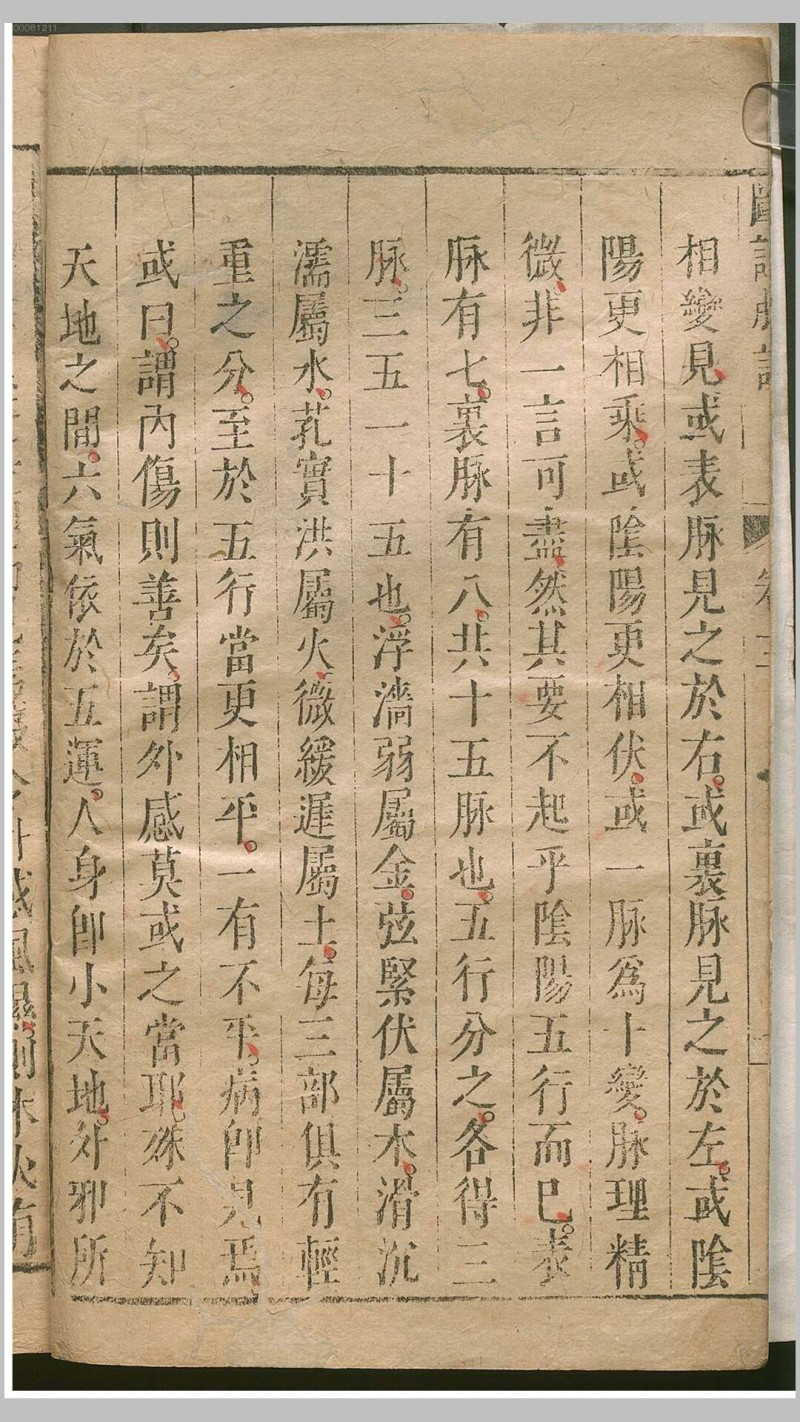 相變見或表脉見之於右或裏脉見之於左或陰
陽更相乘或陰陽更相伏或一脉爲十變脉理精
微非一言可盡然其要不起乎陰陽五行而巳表
脉有七裏脉有八共十五脉也五行分之各得三
脉三五一十五也浮濇弱屬金弦緊伏屬木滑沉
濡屬水芤實洪屬火微緩遲屬土每三部俱有輕
重之分至於五行當更相平一有不平病卽見焉
或曰謂內傷則善矣謂外感莫或之當耶殊不知
天地之間六氣依於五運人身卽小天地外邪所
000081211